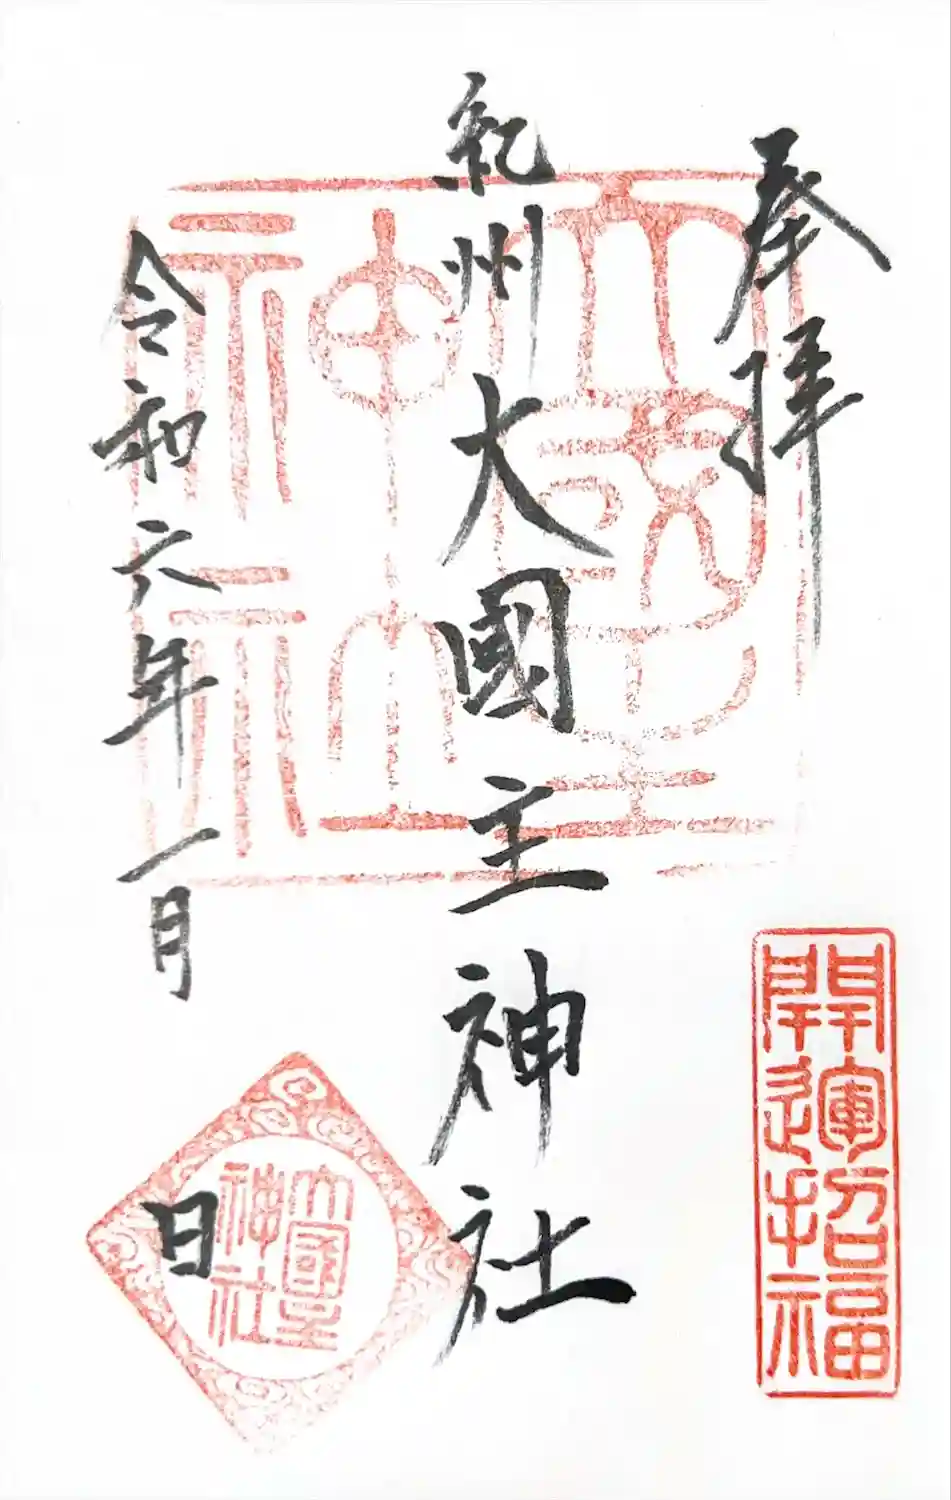 奉拝
開運招福
紀州
大國主神社
大國主神社
令和六年一月
日
大國主
神社